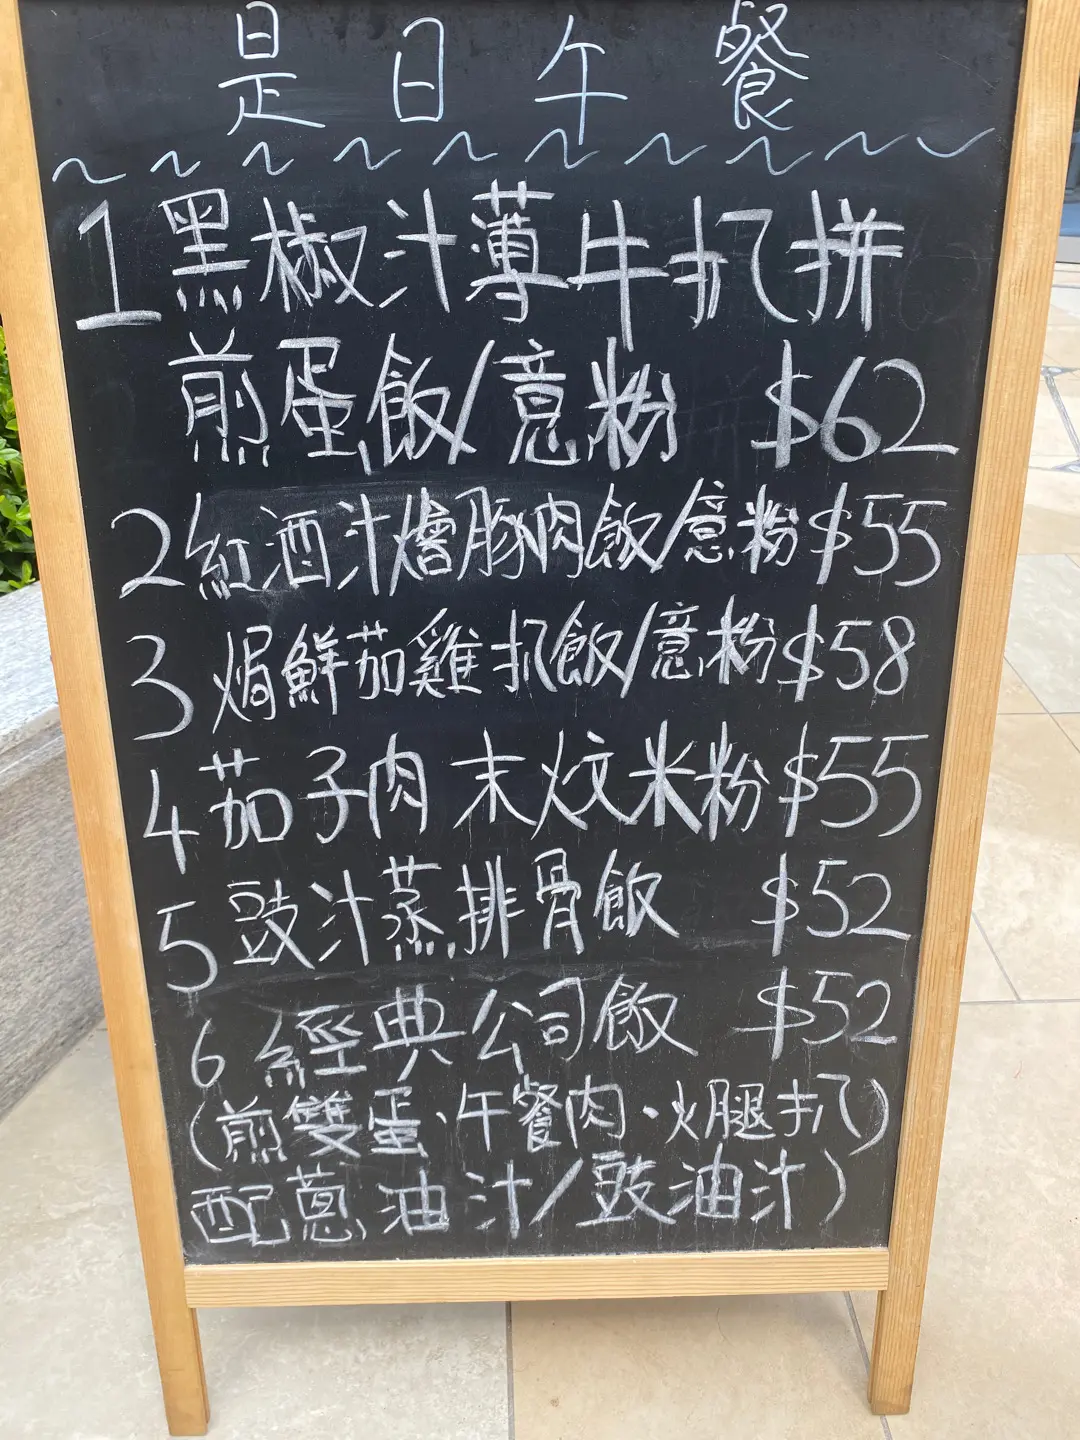 是日午餐
1 黑椒汁薄牛扒拼
煎蛋飯/意粉 $62
2 紅酒汁燴豚肉飯/意粉 $55
3 焗鮮茄雞扒飯/意粉 $58
4 茄子肉末炆米粉 $55
5 豉汁蒸排骨飯 $52
6 經典公司飯 $52
(煎雙蛋、午餐肉、火腿扒)
配蔥油汁/豉油汁)